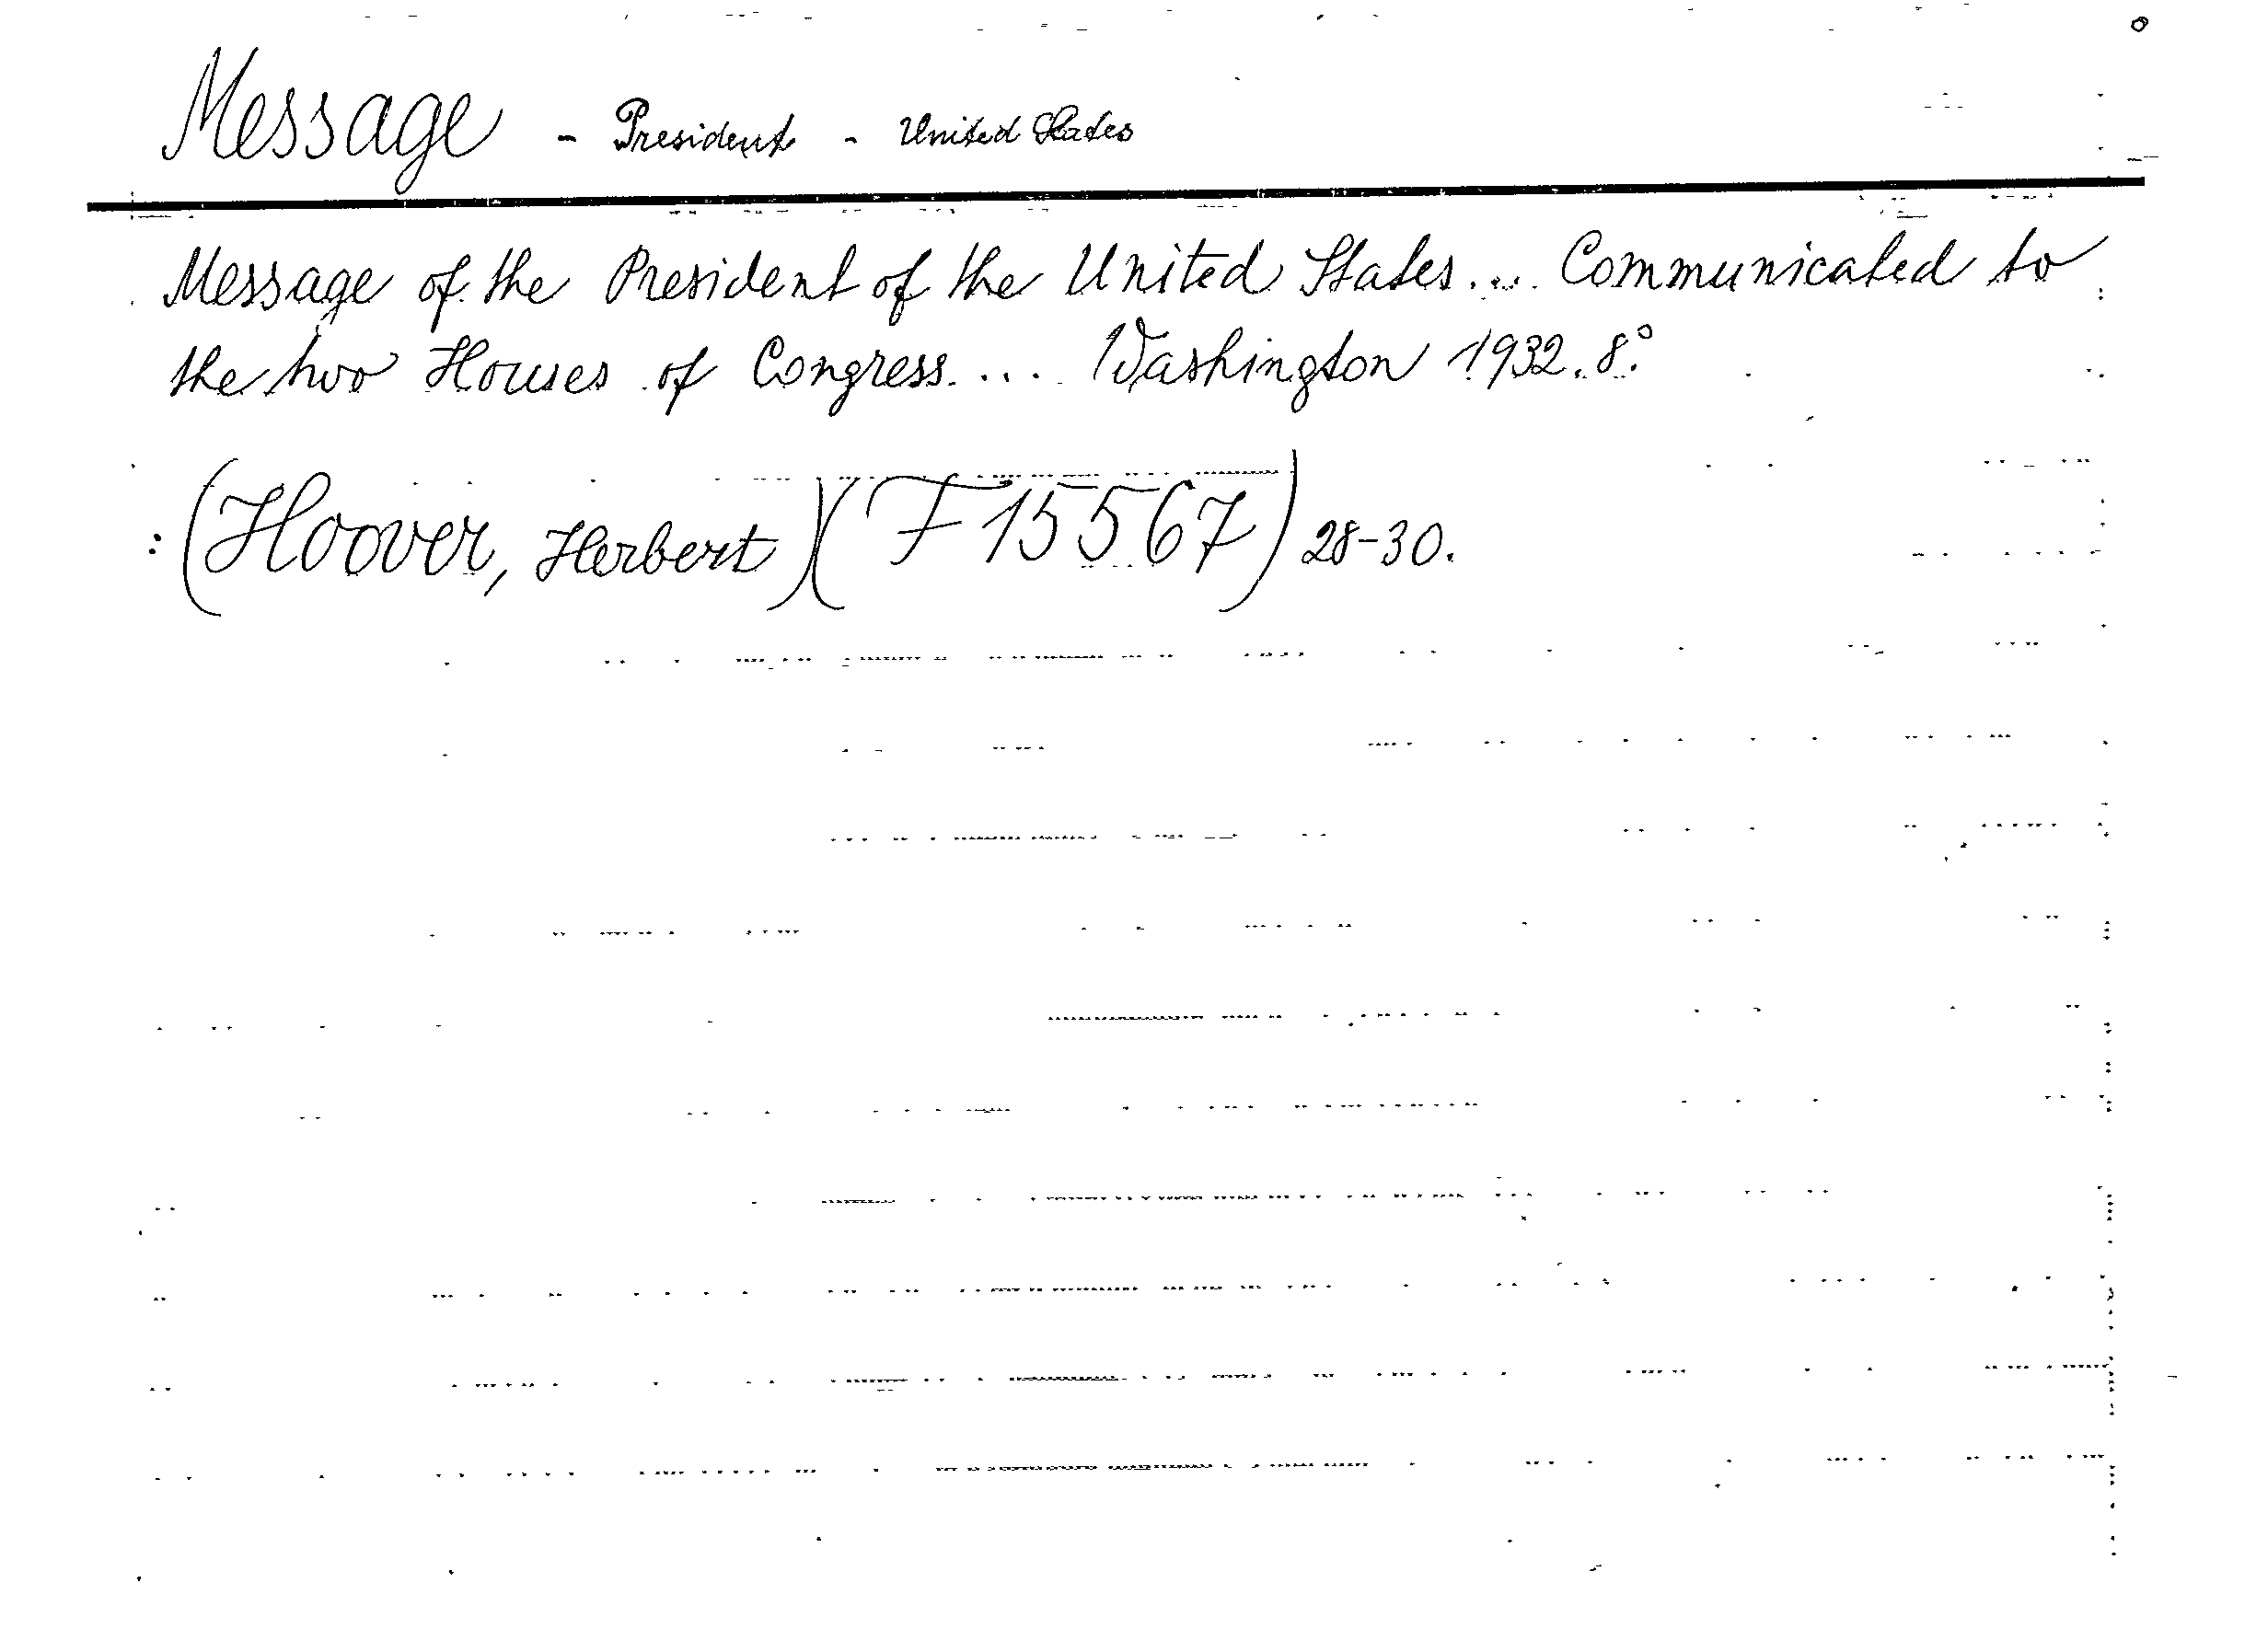 Message - President - United States
Message of the President of the United States... Communicated to
the two Houses of Congress.... Washington 1932. 8.°
: (Hoover, Herbert) (F 15567) 28-30.